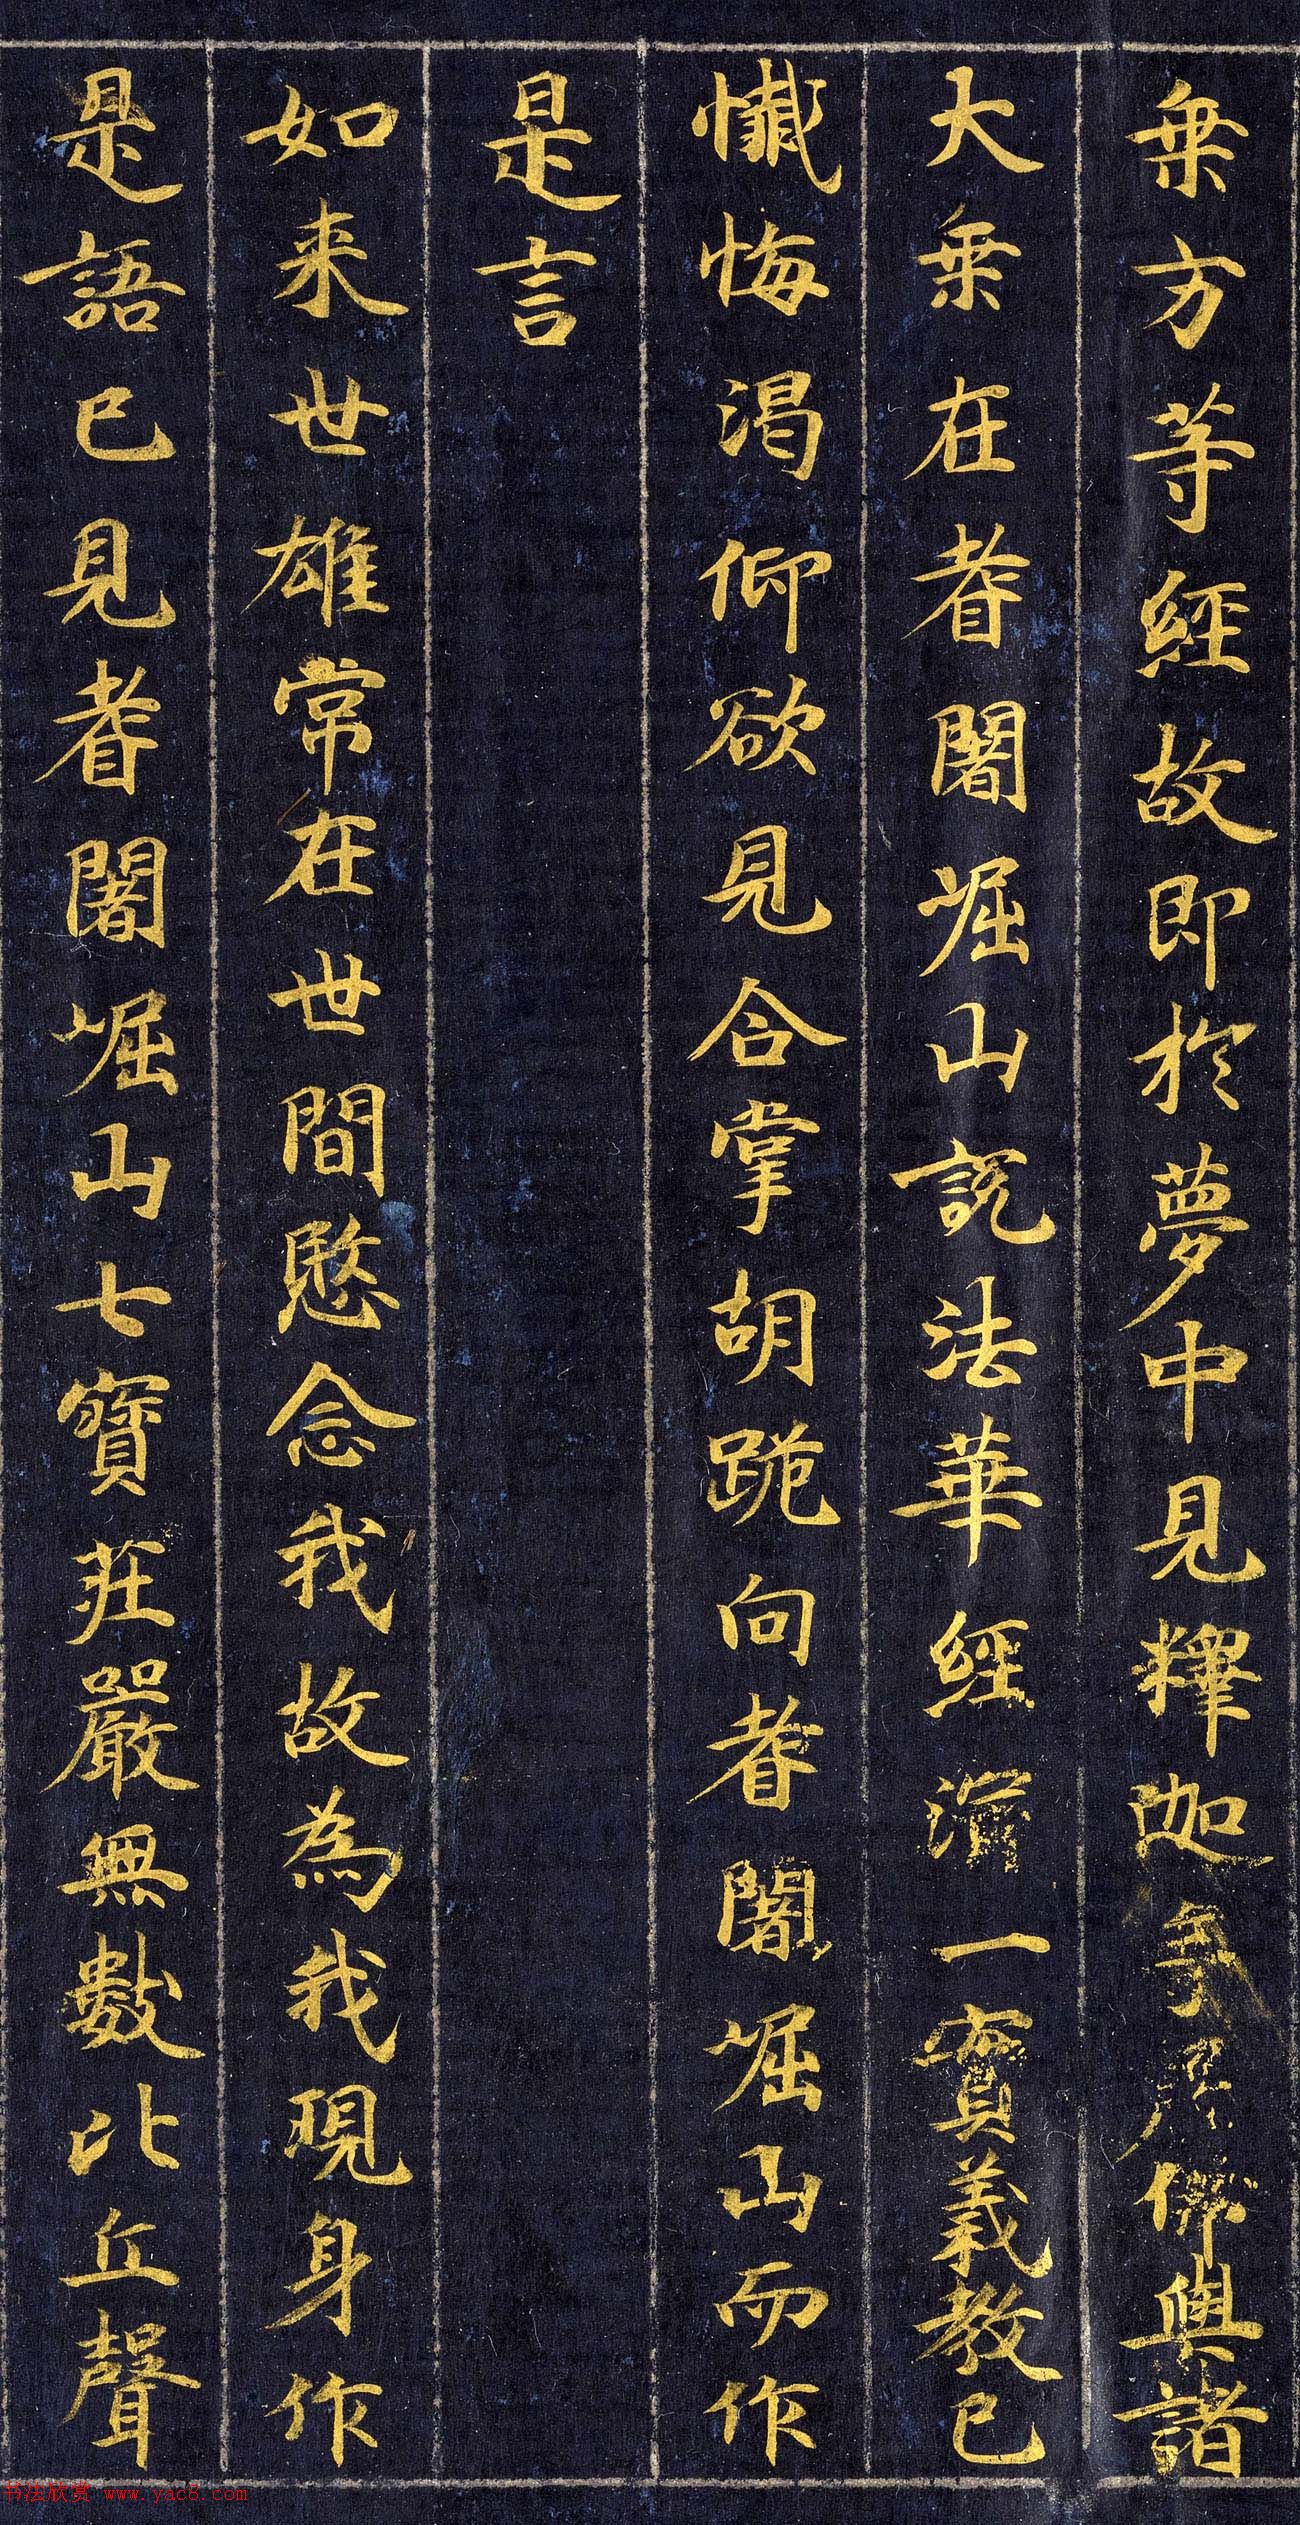 乗方等經故即於夢中見釋迦牟尼佛與諸
大乗在耆闍崛山説法華經演一實義教已
懺悔渇仰欲見合掌胡跪向耆闍崛山而作
是言
如来世雄常在世間愍念我故為我現身作
是語已見耆闍崛山七寶莊嚴無數比丘聲
书法欣赏 www.yac8.com